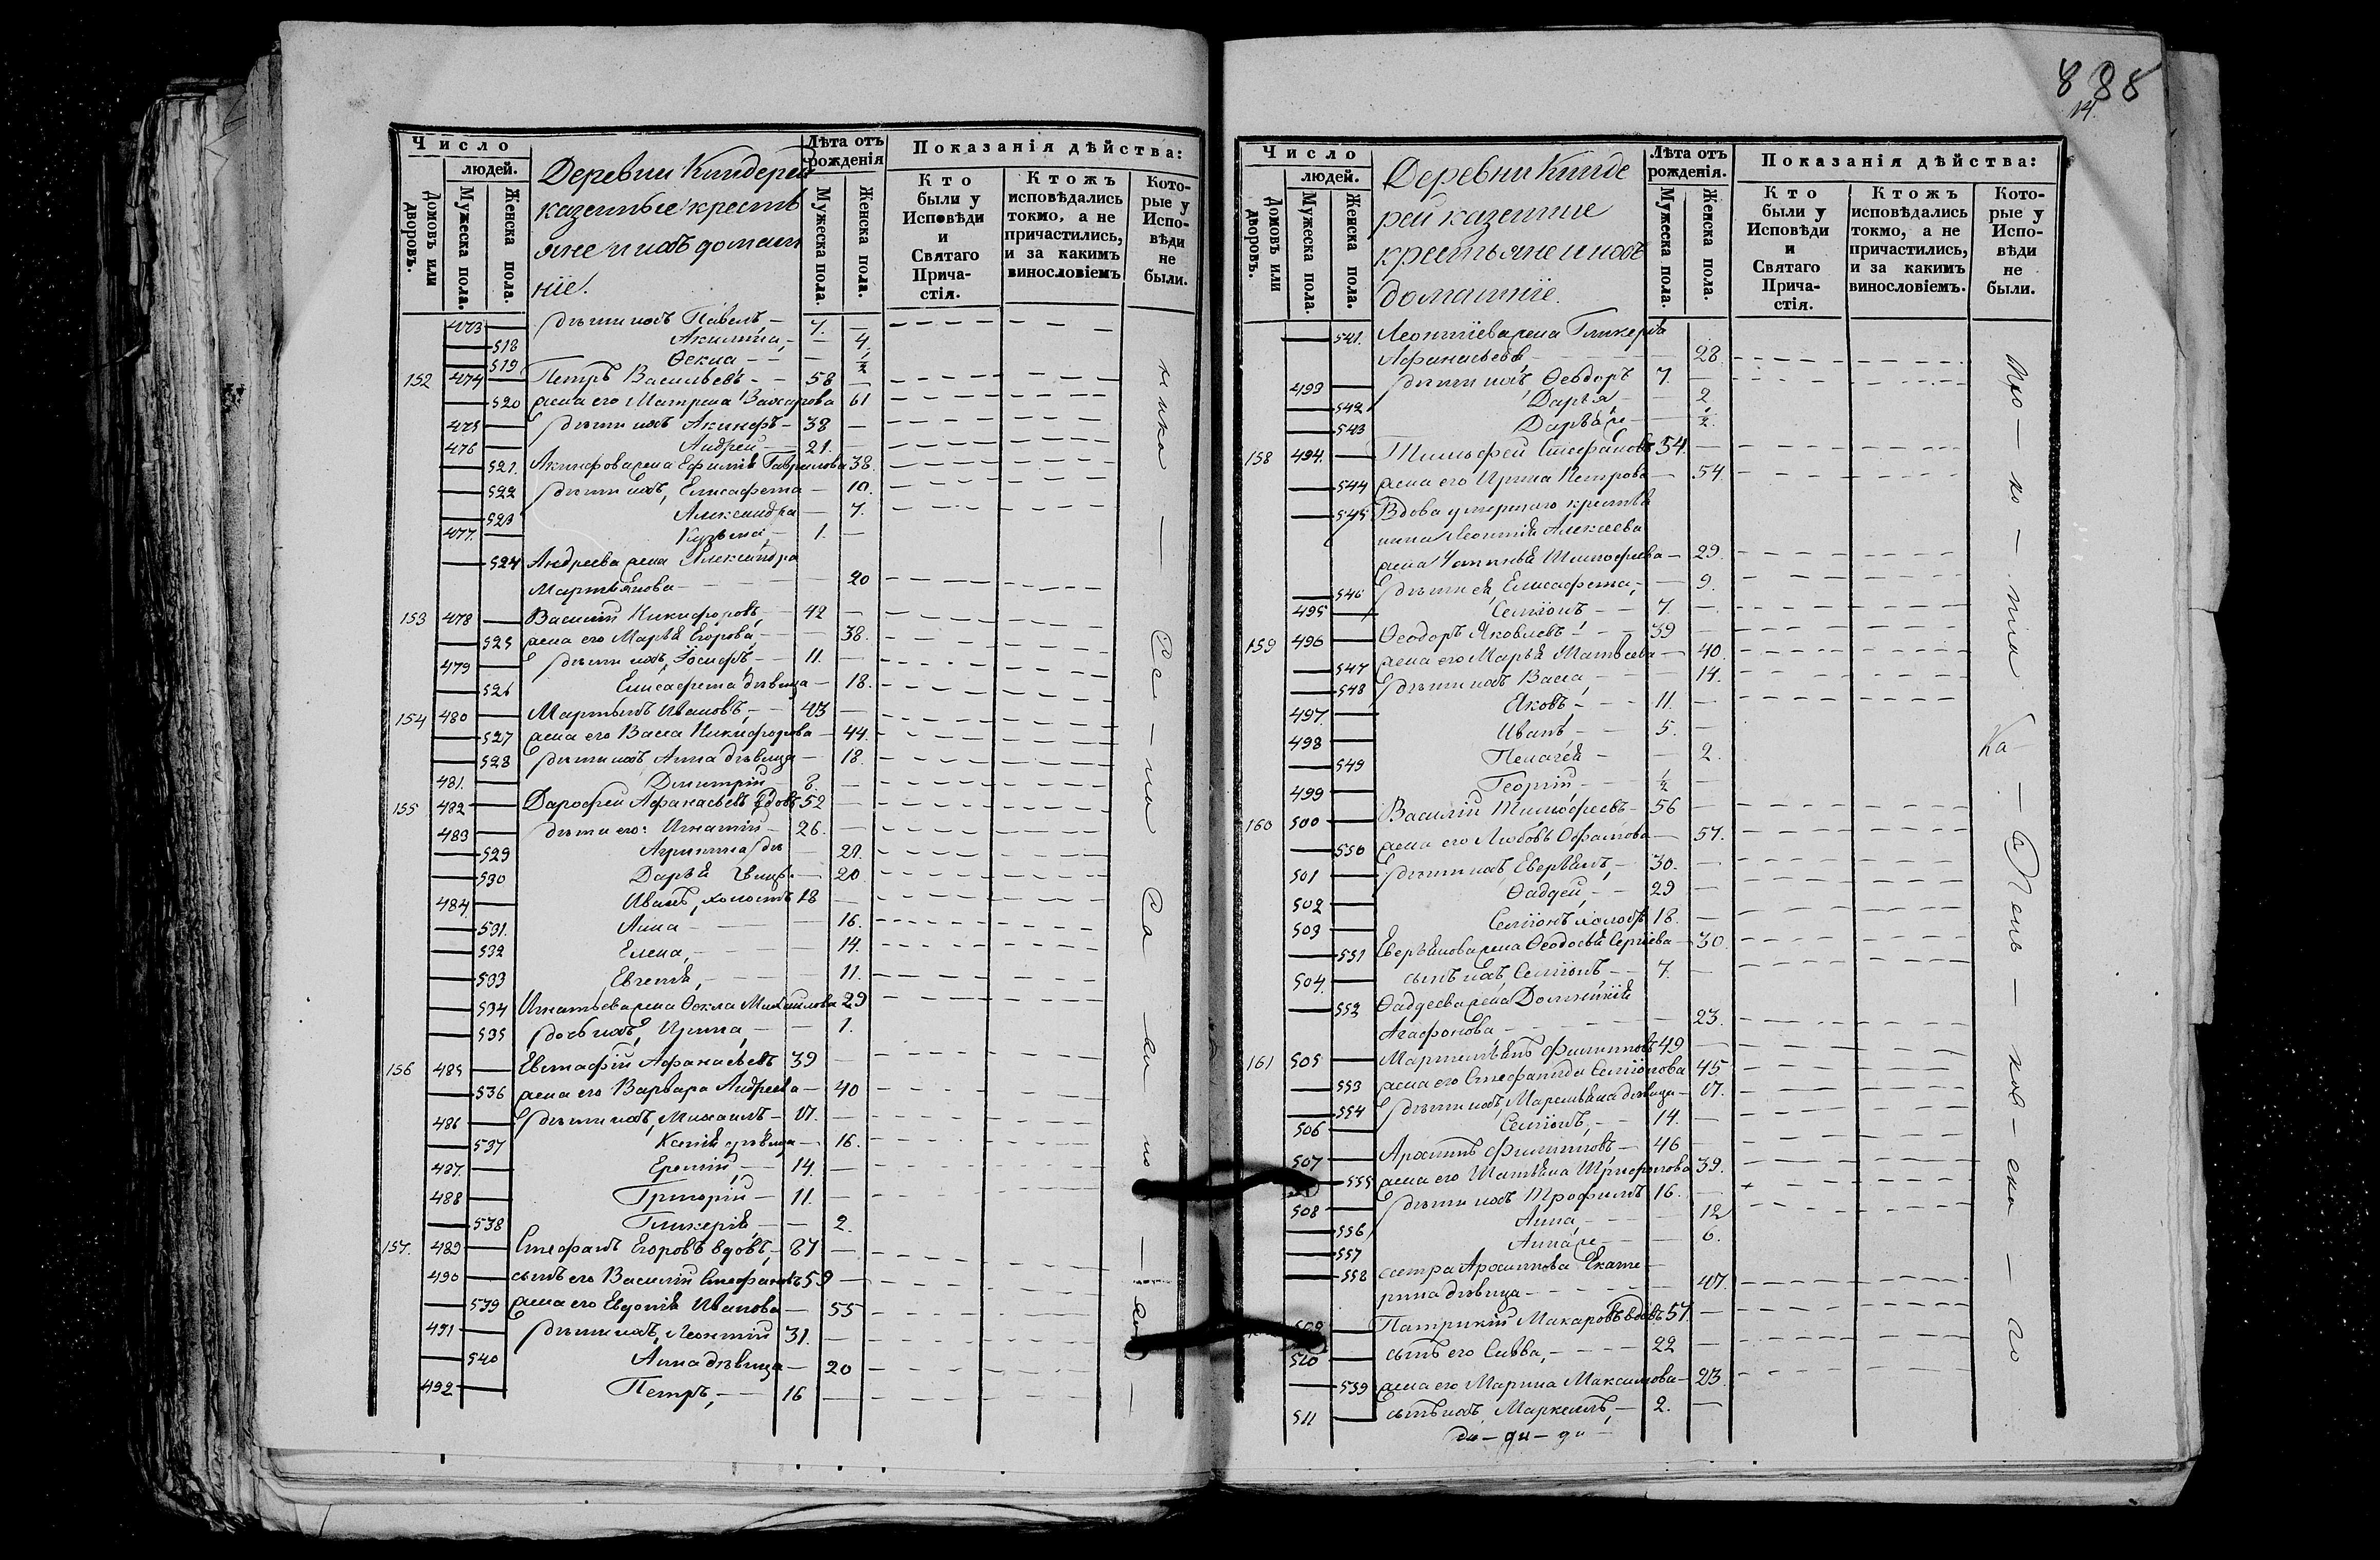 Число
людей.
Домовъ или дворовъ.
Мужеска пола.
Женска пола.
Деревни Киндерей
казенные кресть
яне и ихъ домаш
ніе.
Лѣта отъ
рожденія
Мужеска пола.
Женска пола.
Показанія дѣйства:
Кто
были у
Исповѣди
и
Святаго
Прича-
стія.
Ктожъ
исповѣдались
токмо, а не
причастились,
и за какимъ
винословіемъ
Кото-
рые у
Испо-
вѣди
не
были.
473 дѣти ихъ Павелъ 7.
518 Акилина, 4.
519 Ѳекла ½
152 474 Петръ Васильевъ 58
520 жена его Матрена Захарова 61
475 дѣти ихъ Акинфъ 38
476 Андрей 21.
521. Акинфова жена Ефимія Гаврилова 38.
522 дѣти ихъ, Елисафета 10.
523 Александра 7.
477. Кузьма, 1.
524 Андреева жена Александра
Мартьянова 20
153 478 Василій Никифоровъ, 42
525 жена его Марья Егорова, 38.
479 дѣти ихъ, Іосифъ 11.
526 Елисафета дѣвица 18.
154 480 Мартынъ Ивановъ, 43
527 жена его Васса Никифорова 44.
528 дѣти ихъ Анна дѣвица 18.
481. Димитрій 8.
155 482 Дарофей Афанасьевъ вдовъ 52
483 дѣти его: Игнатій 26.
529 Агрипина дѣ 21.
530 Дарья вицы. 20
484 Иванъ, холостъ 18
531. Анна 16.
532 Елена, 14.
533 Евгенія, 11.
534 Игнатьева жена Ѳекла Михайлова 29
535 дочь ихъ, Ирина, 1.
156 485 Евстафій Афанасьевъ 39
536 жена его Варвара Андреева 40
486 дѣти ихъ, Михаилъ 17.
537 Ксенія дѣвица 16.
487. Еремій, 14.
488 Григорій 11.
538 Гликерія, 2.
157. 489 Стефанъ Егоровъ вдовъ, 87
490 сынъ его Василій Стефановъ 59
539 жена его Евдокія Иванова 55
491 дѣти ихъ, Леонтій 31.
540 Анна дѣвица 20
492 Петръ, 16
888
14.
Число
людей.
Домовъ или дворовъ.
Мужеска пола.
Женска пола.
Деревни Кинде
рей казенные
крестьяне и ихъ
домашніе.
Лѣта отъ
рожденія.
Мужеска пола.
Женска пола.
Показанія дѣйства:
Кто
были у
Исповѣди
и
Святаго
Прича-
стія.
Ктожъ
исповѣдались
токмо, а не
причастились,
и за какимъ
винословіемъ.
Кото-
рые у
Испо-
вѣди
не
были.
541. Леонтіева жена Гликерія
Афанасьева 28.
493 дѣти ихъ Ѳеодоръ 7.
542 Дарья 2
543 Дарья же ½.
158 494. Тимофей Стефановъ 54.
544 жена его Ирина Петрова 54.
545 Вдова умершаго крестья
нина Леонтія Алексеева
жена Тимофеева 29.
546 дѣти ея, Елисафета, 9.
495 Семіонъ 7.
159 496 Ѳеодоръ Яковлевъ 39
547 жена его Марья Матвеева 40.
548 дѣти ихъ Васса 14.
497. Яковъ, 11.
498 Иванъ, 5.
549 Пелагея 2.
499 Георгій, ½
160 500 Василій Тимофеевъ 56
550 жена его Любовь 57.
501 дѣти ихъ, 30.
502 Ѳаддей, 29
503 Семіонъ холостъ 18.
551 жена Ѳеодосья Сергіева 30.
504. сынъ ихъ, Семіонъ 7.
552 Ѳаддеева жена
Агафонова 23.
161 505 Филиповъ 49
553 жена его Стефанида Семіонова 45
554 дѣти ихъ, дѣвица 17.
506 Семіонъ, 14.
507 Архипъ Филиповъ 46
555 жена его 39.
508 дѣти ихъ Трофимъ 16.
556 Анна, 12
557 Анна же 6.
558 сестра Архипова Екате
рина дѣвица 47.
509 Патрикій Макаровъ вдовъ 57.
510 сынъ его Савва, 22
559 жена его Марина Максимова 23.
511 сынъ ихъ, Маркелъ, 2.